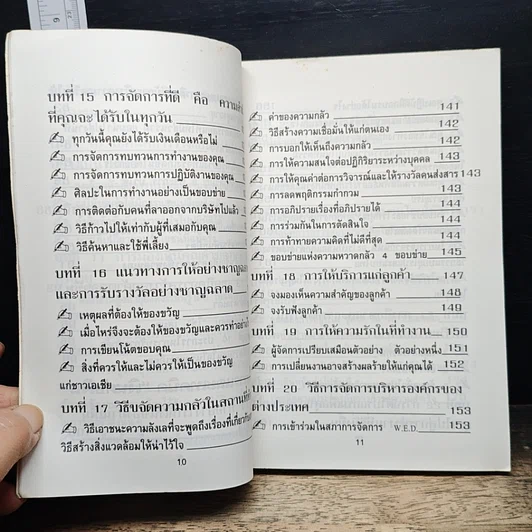 6
บทที่ 15 การจัดการที่ดี คือ
ที่คุณจะได้รับในทุกวัน
ทุกวันนี้คุณยังได้รับเงินเดือนหรือไม่
การจัดการทบทวนการทำงานของคุณ
การจัดการทบทวนการปฏิบัติงานของคุณ
ศิลปะในการทำงานอย่างเป็นขอบข่าย
การติดต่อกับคนที่ลาออกจากบริษัทไปแล้ว
วิธีก้าวไปให้เท่ากับผู้ที่เสมอกับคุณ
วิธีค้นหาและใช้พี่เลี้ยง
บทที่ 16 แนวทางการให้อย่างชาญฉลาด
และการรับรางวัลอย่างชาญฉลาด
เหตุผลที่ต้องให้ของขวัญ
เมื่อไหร่จึงจะต้องให้ของขวัญและควรทำอย่างไร
การเขียนโน้ตขอบคุณ
สิ่งที่ควรให้และไม่ควรให้เป็นของขวัญ
แก่ชาวเอเชีย
บทที่ 17 วิธีขจัดความกลัวในสถานที่
วิธีเอาชนะความลังเลที่จะพูดถึงเรื่องที่เกี่ยวกับ
วิธีสร้างสิ่งแวดล้อมให้น่าไว้ใจ
10
ค่าของความกลัว 141
วิธีสร้างความเชื่อมั่นให้แก่ตนเอง 142
การบอกให้เห็นถึงความกลัว 142
การให้ความสนใจต่อปฏิกิริยาระหว่างบุคคล 143
การให้คุณค่าต่อการวิจารณ์และให้รางวัลคนส่งสาร 143
การลดพฤติกรรมกำกวม 143
การอภิปรายเรื่องที่อภิปรายได้ 144
การร่วมกันในการตัดสินใจ 144
การท้าทายความคิดที่ไม่ดีที่สุด 144
ขอบข่ายแห่งความหวาดกลัว 4 ขอบข่าย 145
บทที่ 18 การให้บริการแก่ลูกค้า 147
จงมองเห็นความสำคัญของลูกค้า 148
จงรับฟังลูกค้า 149
บทที่ 19 การให้ความรักในที่ทำงาน 150
ผู้จัดการเปรียบเสมือนตัวอย่าง ตัวอย่างหนึ่ง 151
การเปลี่ยนงานอาจสร้างผลร้ายให้แก่คุณได้ 152
บทที่ 20 วิธีการจัดการบริหารองค์กรของ
ต่างประเทศ 153
การเข้าร่วมในสภาการจัดการ W.E.D. 153
11